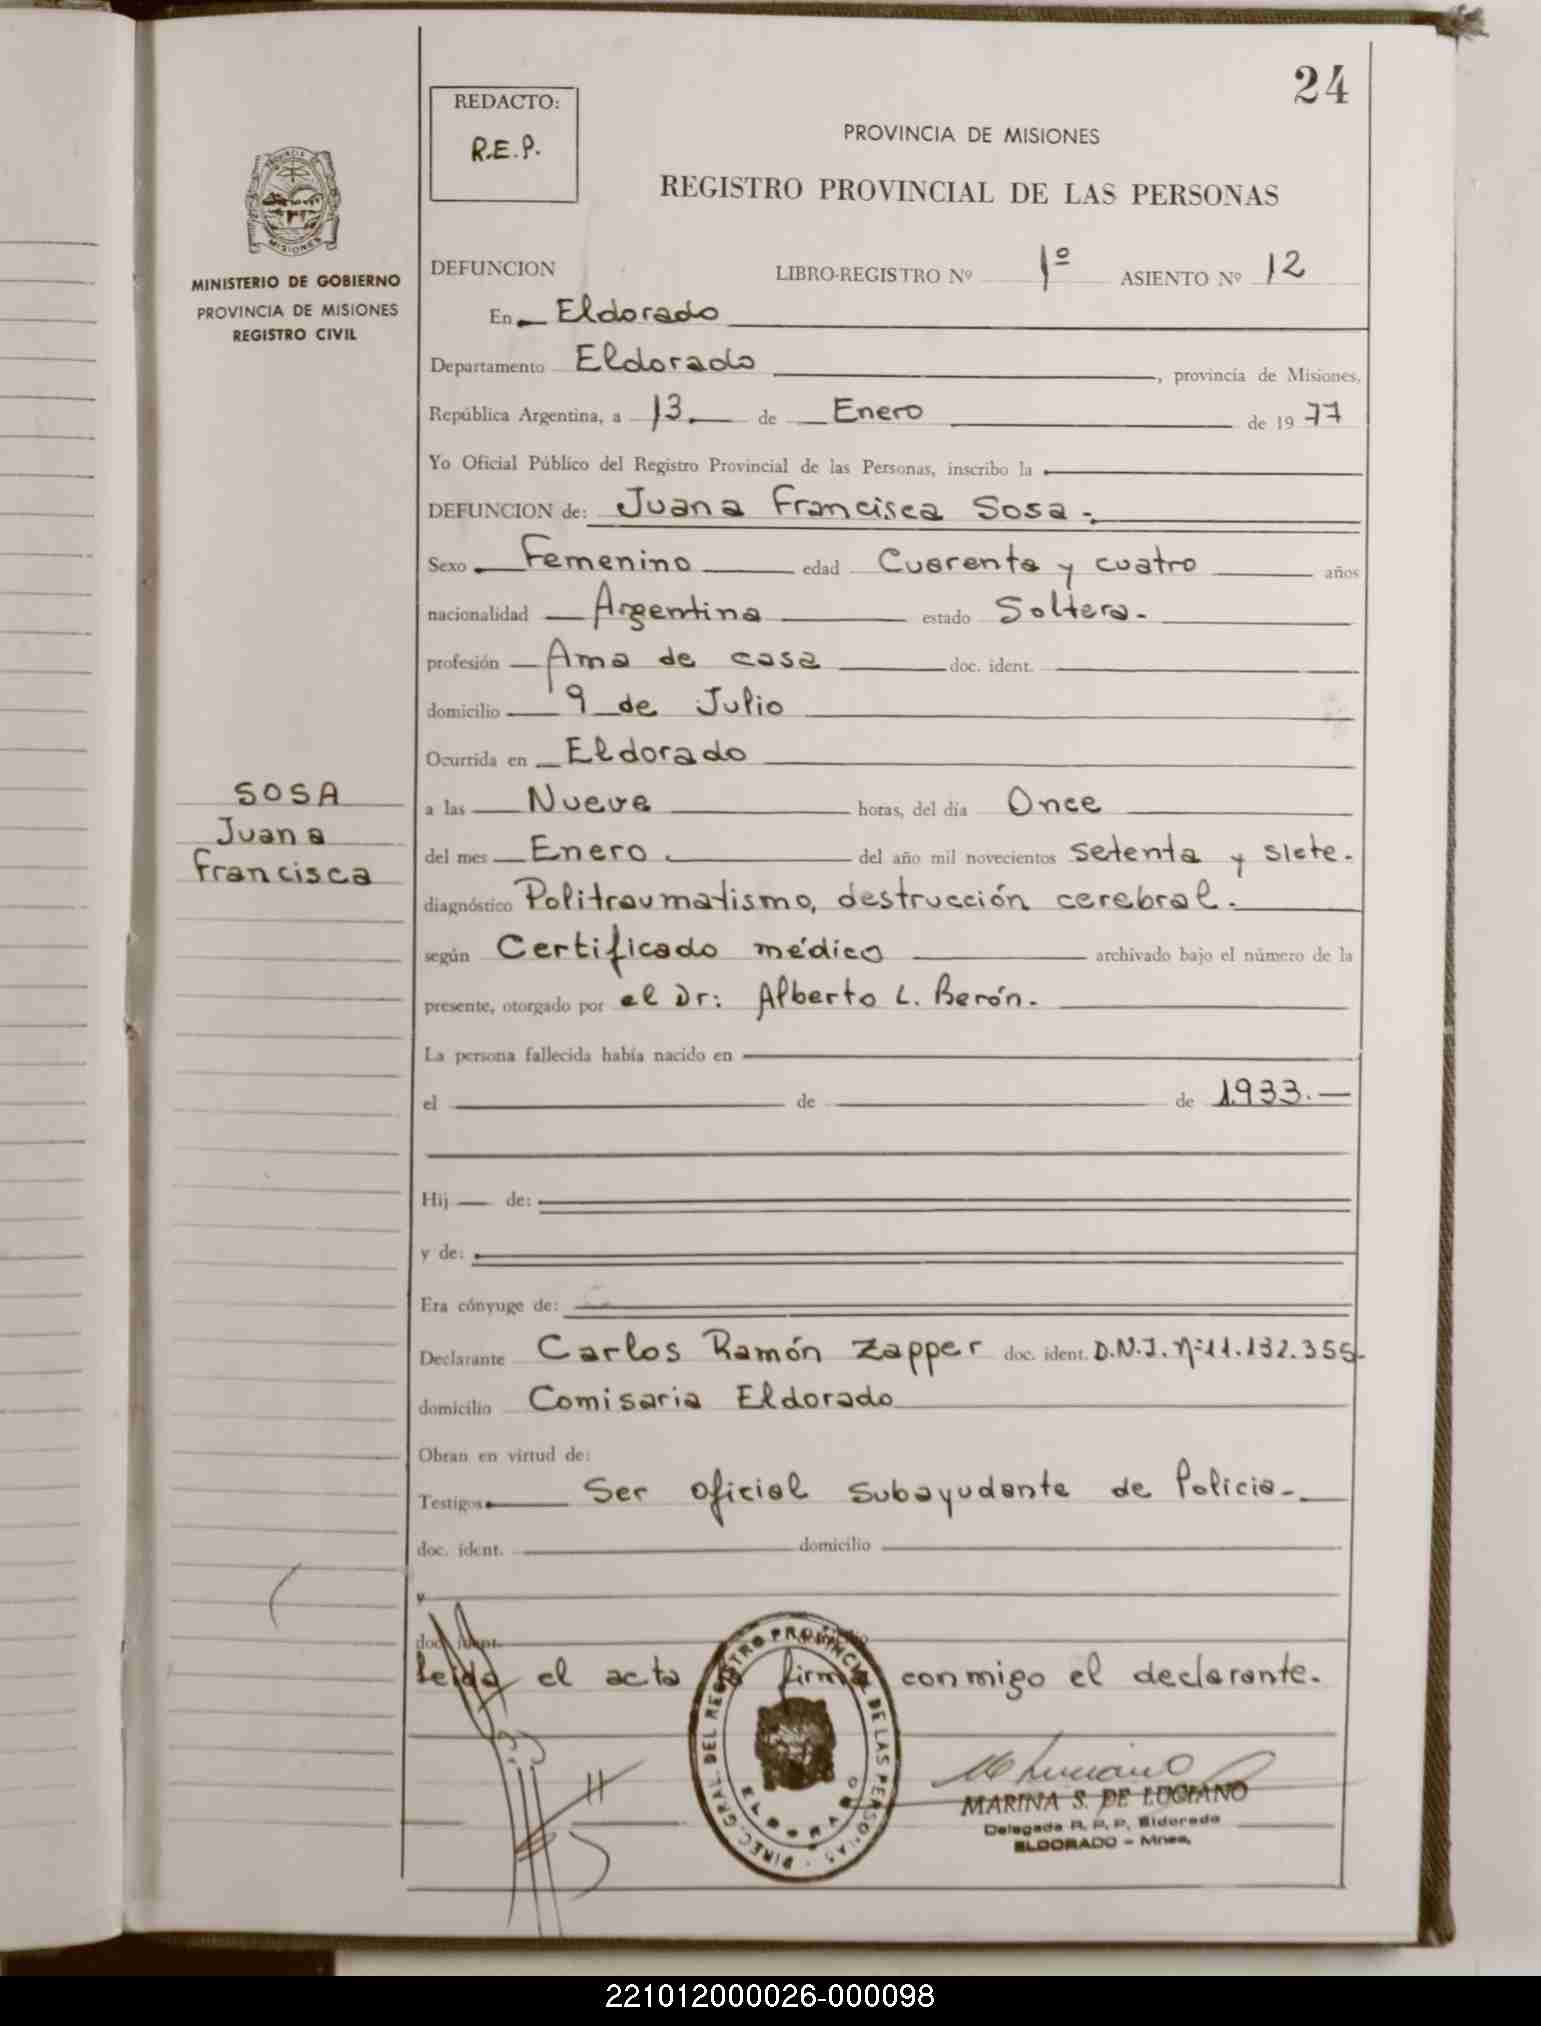 24
REDACTO:
R.E.P.
PROVINCIA DE MISIONES
REGISTRO PROVINCIAL DE LAS PERSONAS
PROVINCIA DE
MISIONES
MINISTERIO DE GOBIERNO
PROVINCIA DE MISIONES
REGISTRO CIVIL
DEFUNCION LIBRO-REGISTRO Nº 1º ASIENTO Nº 12
En Eldorado
Departamento Eldorado, provincia de Misiones,
República Argentina, a 13 de Enero de 1977
Yo Oficial Público del Registro Provincial de las Personas, inscribo la
DEFUNCION de: Juana Francisca Sosa.
Sexo Femenino edad Cuarenta y cuatro años
nacionalidad Argentina estado Soltera.
profesión Ama de casa doc. ident.
domicilio 9 de Julio
Ocurrida en Eldorado
SOSA
Juana
Francisca
a las Nueve horas, del día Once
del mes Enero del año mil novecientos setenta y siete.
diagnóstico Politraumatismo, destrucción cerebral.
según Certificado médico archivado bajo el número de la
presente, otorgado por el Dr: Alberto L. Berón.
La persona fallecida había nacido en
el de de 1933.
Hij de:
y de:
Era cónyuge de:
Declarante Carlos Ramón Zapper doc. ident. D.N.I. Nº 11.132.355.
domicilio Comisaria Eldorado
Obran en virtud de:
Testigos Ser oficial subayudante de Policia.
doc. ident. domicilio
y
doc. ident.
Leida el acta la firma conmigo el declarante.
DIREC. GRAL. DEL REGISTRO PROVINCIAL DE LAS PERSONAS
ELDORADO
MARINA S. DE LUCIANO
Delegada R. P. P. Eldorado
ELDORADO - Mnes.
221012000026-000098